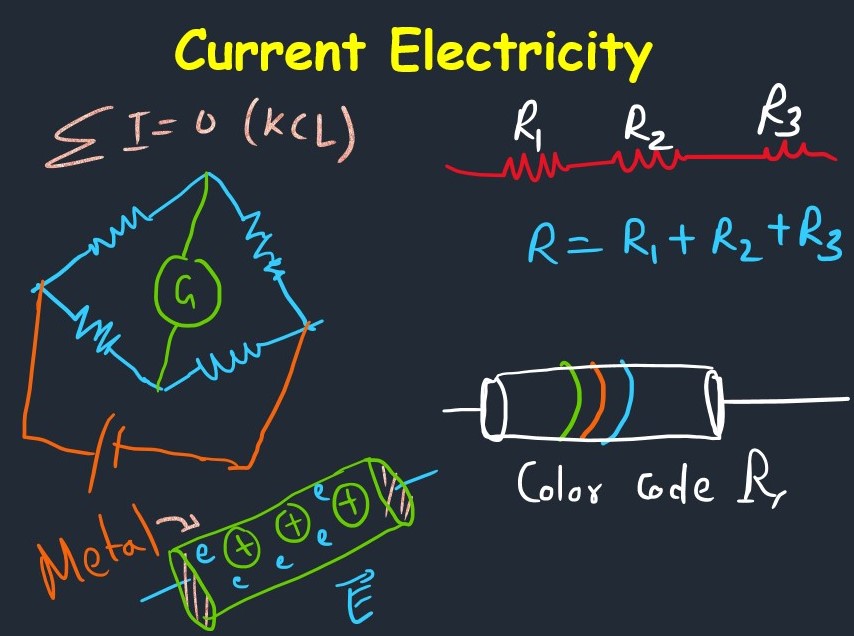 Current Electricity
∑ I = 0 (KCL)
R₁ R₂ R₃
R = R₁ + R₂ + R₃
G
Color code R,
Metal
e + + +
e
e e e
E⃗